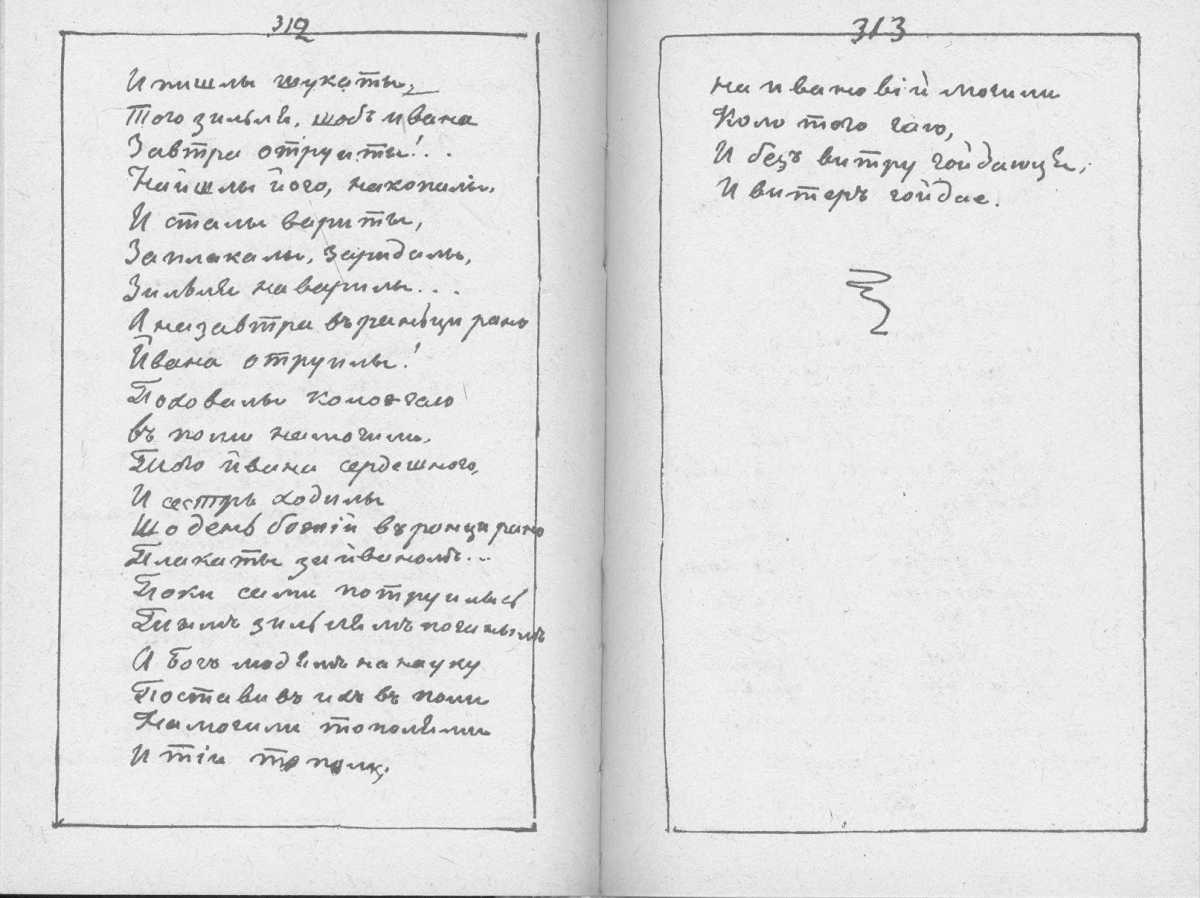 312
И пишлы шукаты,
Того зильля, щобъ ивана
Завтра отруиты!..
Найшлы його, накопалы,
И сталы вариты,
Заплакалы, заридалы,
Зильля наварилы...
А назавтра въранци рано
Йвана отруилы!
Поховалы коло гаю
въ поли намогили.
Того йвана сердешного,
И сестры ходилы
Що день божій въранци рано
Плакаты за йваномъ...
Поки сами потруилысь
Тимъ зильлямъ поганымъ
А Богъ людямъ на науку
Поставивъ ихъ въ поли
На могили тополями
И тіи тополи,
313
на ивановій могили
Коло того гаю,
И безъ витру гойдаюця,
И витеръ гойдае.